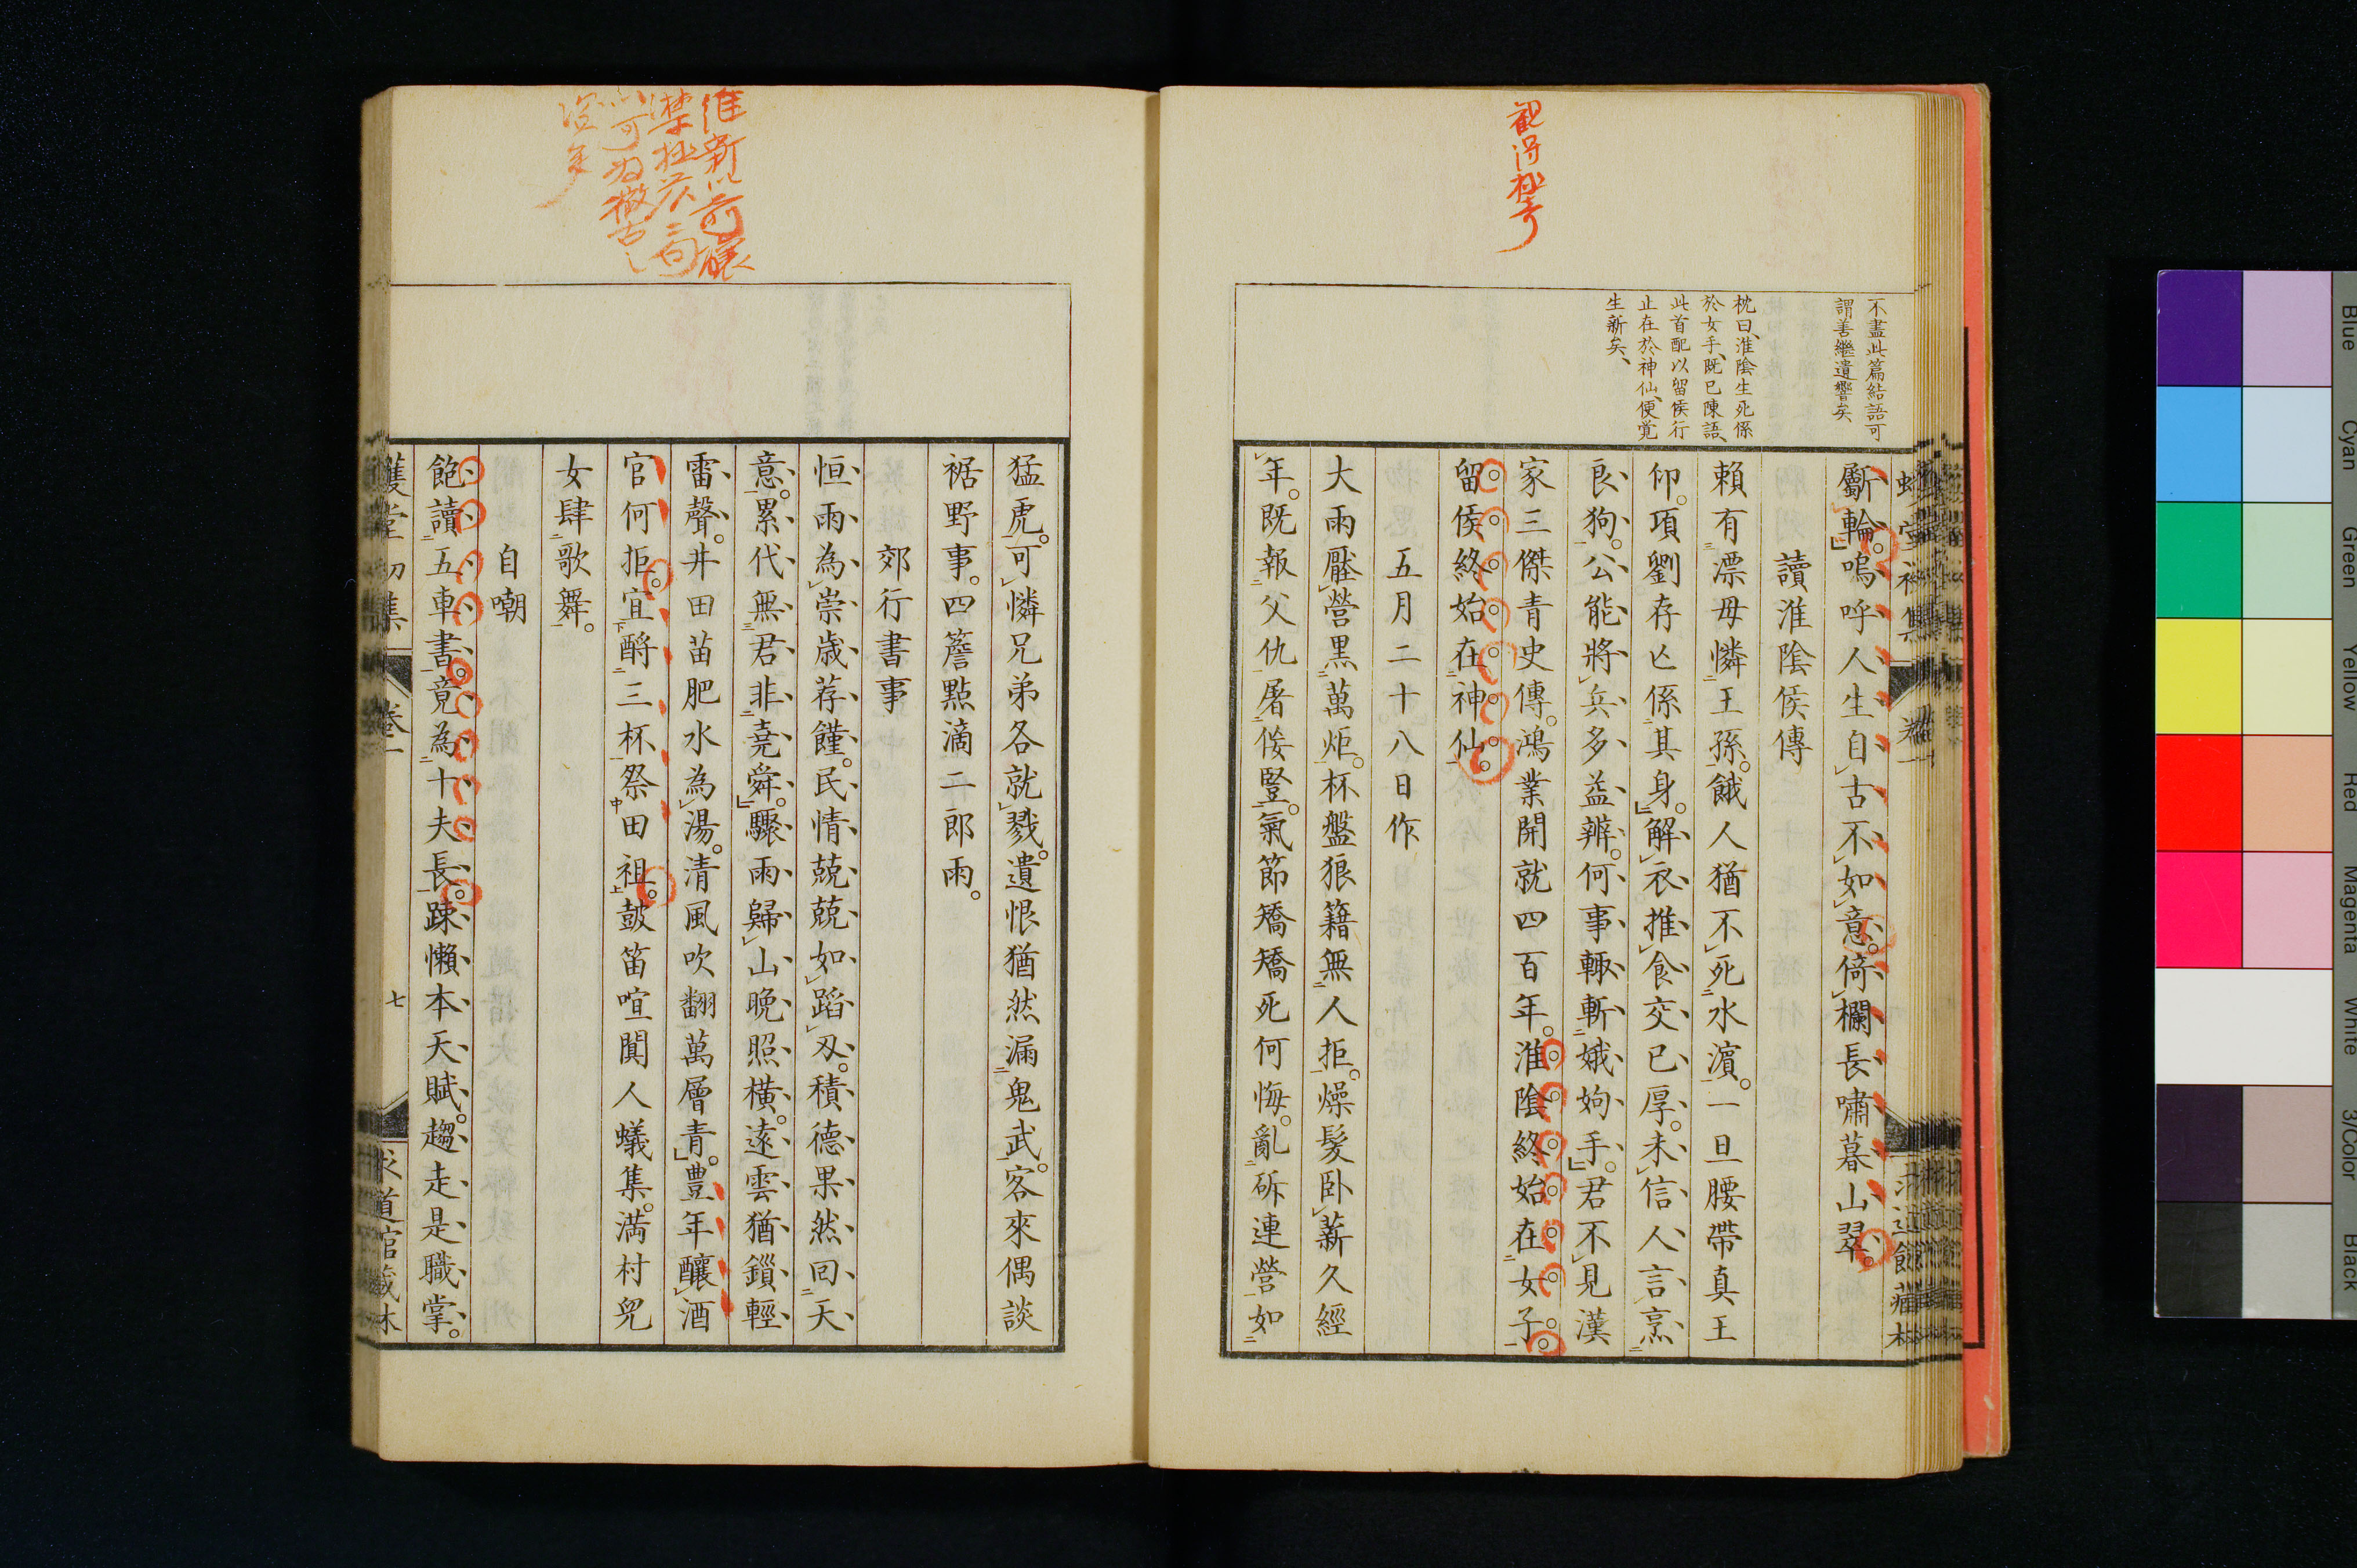 觀得極奇
不盡此篇結語可
謂善繼遺響矣
枕曰、淮陰生死係
於女手、既已陳語、
此首配以留侯行
止在於神仙、便覺
生新矣、
斸輪。嗚呼人生自古不如意。倚欄長嘯暮山翠。
讀淮陰侯傳
賴有漂母憐王孫。餓人猶不死水濱。一旦腰帶真王
印。項劉存亡係其身。解衣推食交已厚。未信人言烹
良狗。公能將兵多益辦。何事輙斬娥姁手。君不見漢
家三傑青史傳。鴻業開就四百年。淮陰終始在女子。
留侯終始在神仙。
五月二十八日作
大雨壓營黑萬炬。杯盤狼籍無人拒。燥髮臥薪久經
年。既報父仇屠侫豎。氣節矯矯死何悔。亂斫連營如
維新以前釀
禁極
猛虎。可憐兄弟各就戮。遺恨猶然漏鬼武。客來偶談
裾野事。四簷點滴二郎雨。
郊行書事
恒雨為崇歲荐饉。民情兢兢如蹈刄。積德果然回天
意。累代無君非堯舜。驟雨歸山晚照橫。遠雲猶鎻輕
雷聲。井田苗肥水為湯。清風吹翻萬層青。豊年釀酒
官何拒。宜酹三杯祭田祖。皷笛喧闐人蟻集。滿村兒
女肆歌舞。
自嘲
飽讀五車書。竟為十夫長。踈懶本天賦。趨走是職掌。
卷一
七
求道館藏